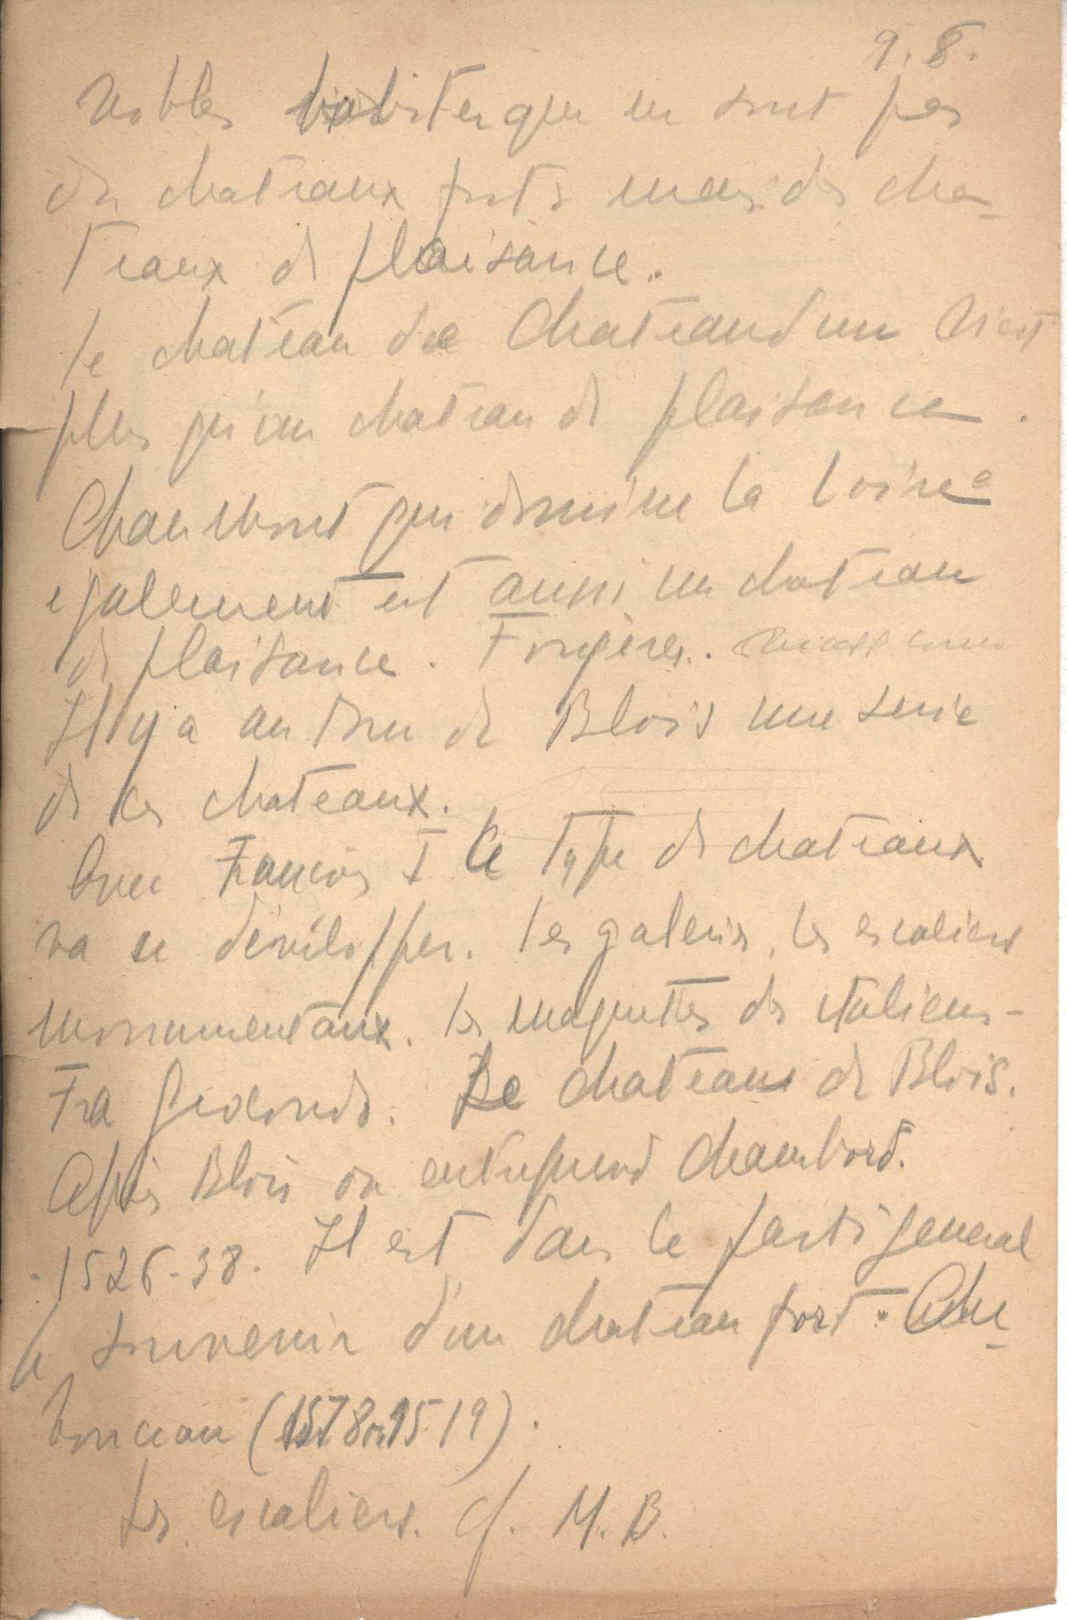 9. 8.
nobles habiter que ne sont pas
des chateaux forts mais des cha-
teaux de plaisance.
Le chateau de Chateaudun n'est
plus qu'un chateau de plaisance.
Chaumont qui domine la Loire
egalement est aussi un chateau
de plaisance. Fougères.
Il y a autour de Blois une serie
de ces chateaux.
Avec François I ce type de chateaux
va se développer. Les galeries, les escaliers
monumentaux. Les maquettes des italiens -
Fra Giocondo. Le chateau de Blois.
Après Blois on entreprend Chambord.
1526-38. Il est dans le parti general
le souvenir d'un chateau fort.
(1519).
Les escaliers. cf. M. B.